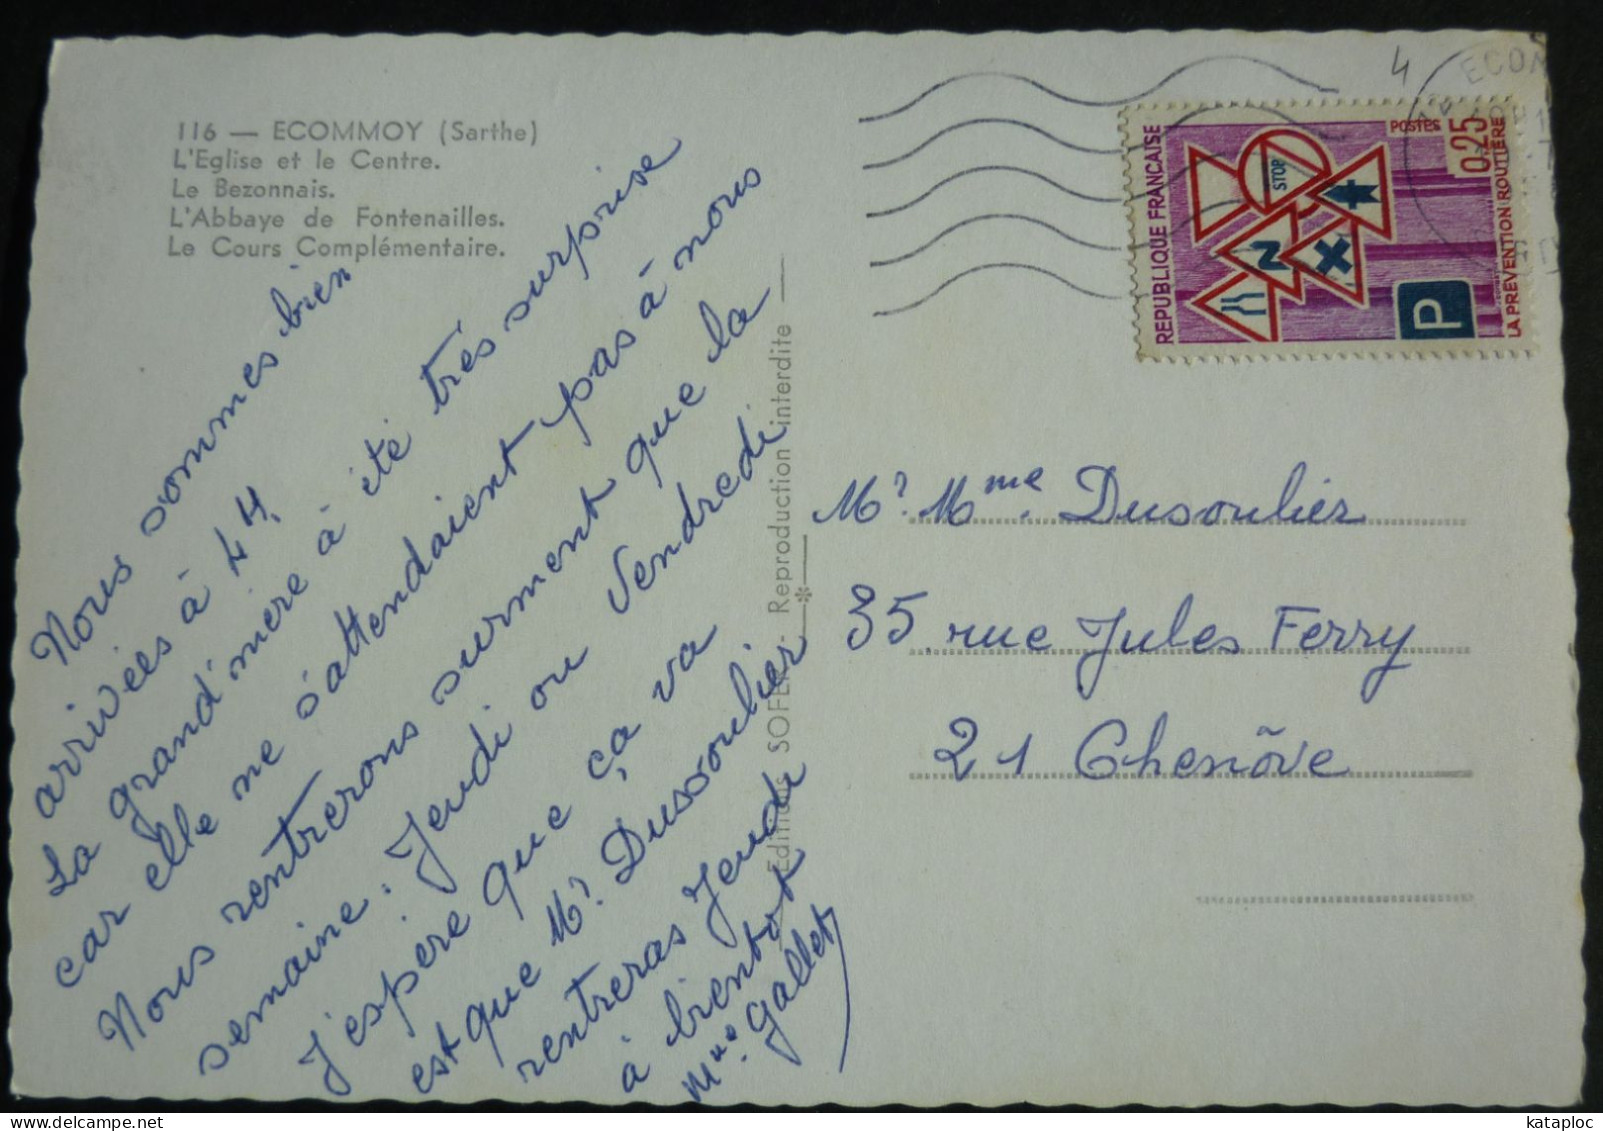 116 — ECOMMOY (Sarthe)
L'Eglise et le Centre.
Le Bezonnais.
L'Abbaye de Fontenailles.
Le Cours Complémentaire.
Nous sommes bien
arrivées à 4H.
La grand'mère à été très surprise
car elle ne s'attendaient pas à nous
Nous rentrerons surment que la
semaine. Jeudi ou Vendredi
J'espère que ça va
est que Mr Dusoulier
rentreras Jeudi
à bientot
Mme Gallet
Editions SOFER - Reproduction interdite
4
ECOM
REPUBLIQUE FRANÇAISE
POSTES
0,25
LA PRÉVENTION ROUTIÈRE
STOP
P
Mr. Mme. Dusoulier
35 rue Jules Ferry
21 Chenôve
www.delcampe.net
kataploc